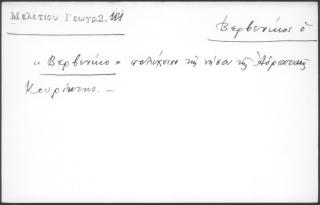 Μελετίου Γεωγρ. 2, 101
Βερβενίκος ὁ
« Βερβενίκο » πολίχνιον τῆς νήσου τῆς Ἀδριατικῆς
Κουρίκτης. —